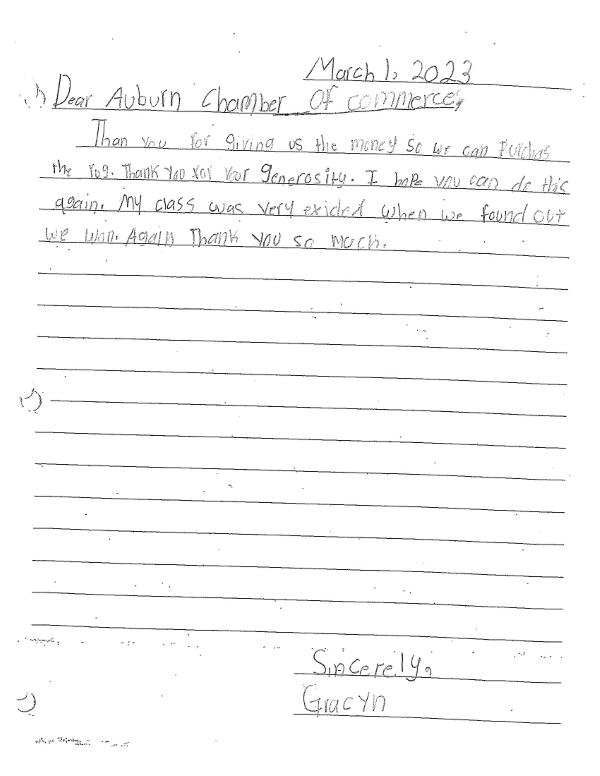 March 1, 2023
Dear Auburn Chamber of commerce,
Than you for giving us the money so we can Purchas
the rug. Thank you for your generosity. I hope you can do this
again. My class was very exided when we found out
we win. Again Thank you so much.
Sincerely,
Gracyn